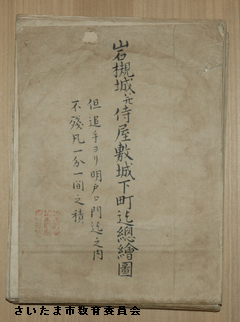 岩槻城并侍屋敷城下町迄總繪圖
但追手ヨリ明戸口門迄之内
不殘凡一分一間之積
さいたま市教育委員会